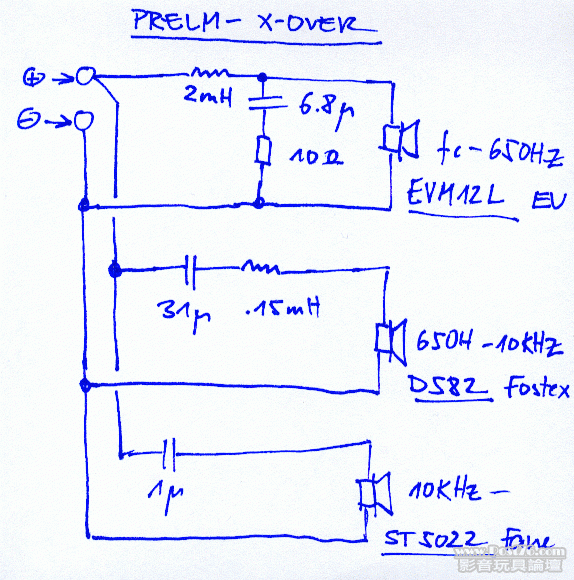 PRELM - X-OVER
⊕→
2mH
6.8μ
⊖→
10Ω
fc - 650HZ
EVM12L EV
31μ
.15mH
650H - 10KHZ
D582 Fostex
1μ
10KHZ -
ST5022 Fane
影音玩具論壇